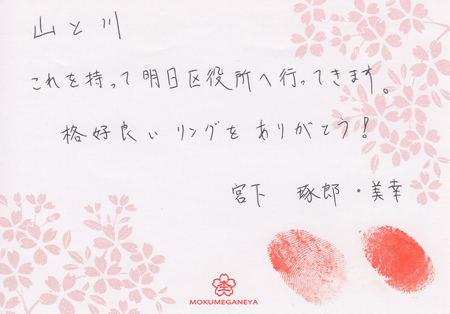 山と川
これを持って明日区役所へ行ってきます。
格好良いリングをありがとう!
宮下 琢郎・美幸
MOKUMEGANEYA